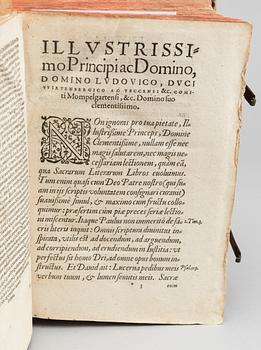 ILLVSTRISSI-
mo Principi ac Domino,
DOMINO LVDOVICO, DVCI
VVIRTENBERGICO AC TECCENSI &c. COMI-
ti Mompelgartensi, &c. Domino suo
clementissimo.
NOn ignoras pro tua pietate, Il-
lustrissime Princeps, Domine
Clementissime, nullam esse nec
magis salutarem, nec magis ne-
cessariam lectionem, quàm ea,
qua Sacrarum Literarum Libros euoluimus.
Tum enim quasi cum Deo Patre nostro (qui su-
am in ijs scriptis voluntatem consignari curauit)
suauissimè simul, & maximo cum fructu collo-
quimur: præsertim cum piæ preces seriæ lectio-
ni miscentur. Itaque Paulus non immeritò de sa- 2. Tim. 3.
cris literis inquit: Omnis scriptura diuinitus in-
spirata, vtilis est ad docendum, ad arguendum,
ad corripiendum, ad erudiendum in Iustitia: vt
perfectus sit homo Dei, ad omne opus bonum in-
structus. Et Dauid ait: Lucerna pedibus meis Psal. 119.
verbum tuum, & lumen semitis meis. Sacræ
enim